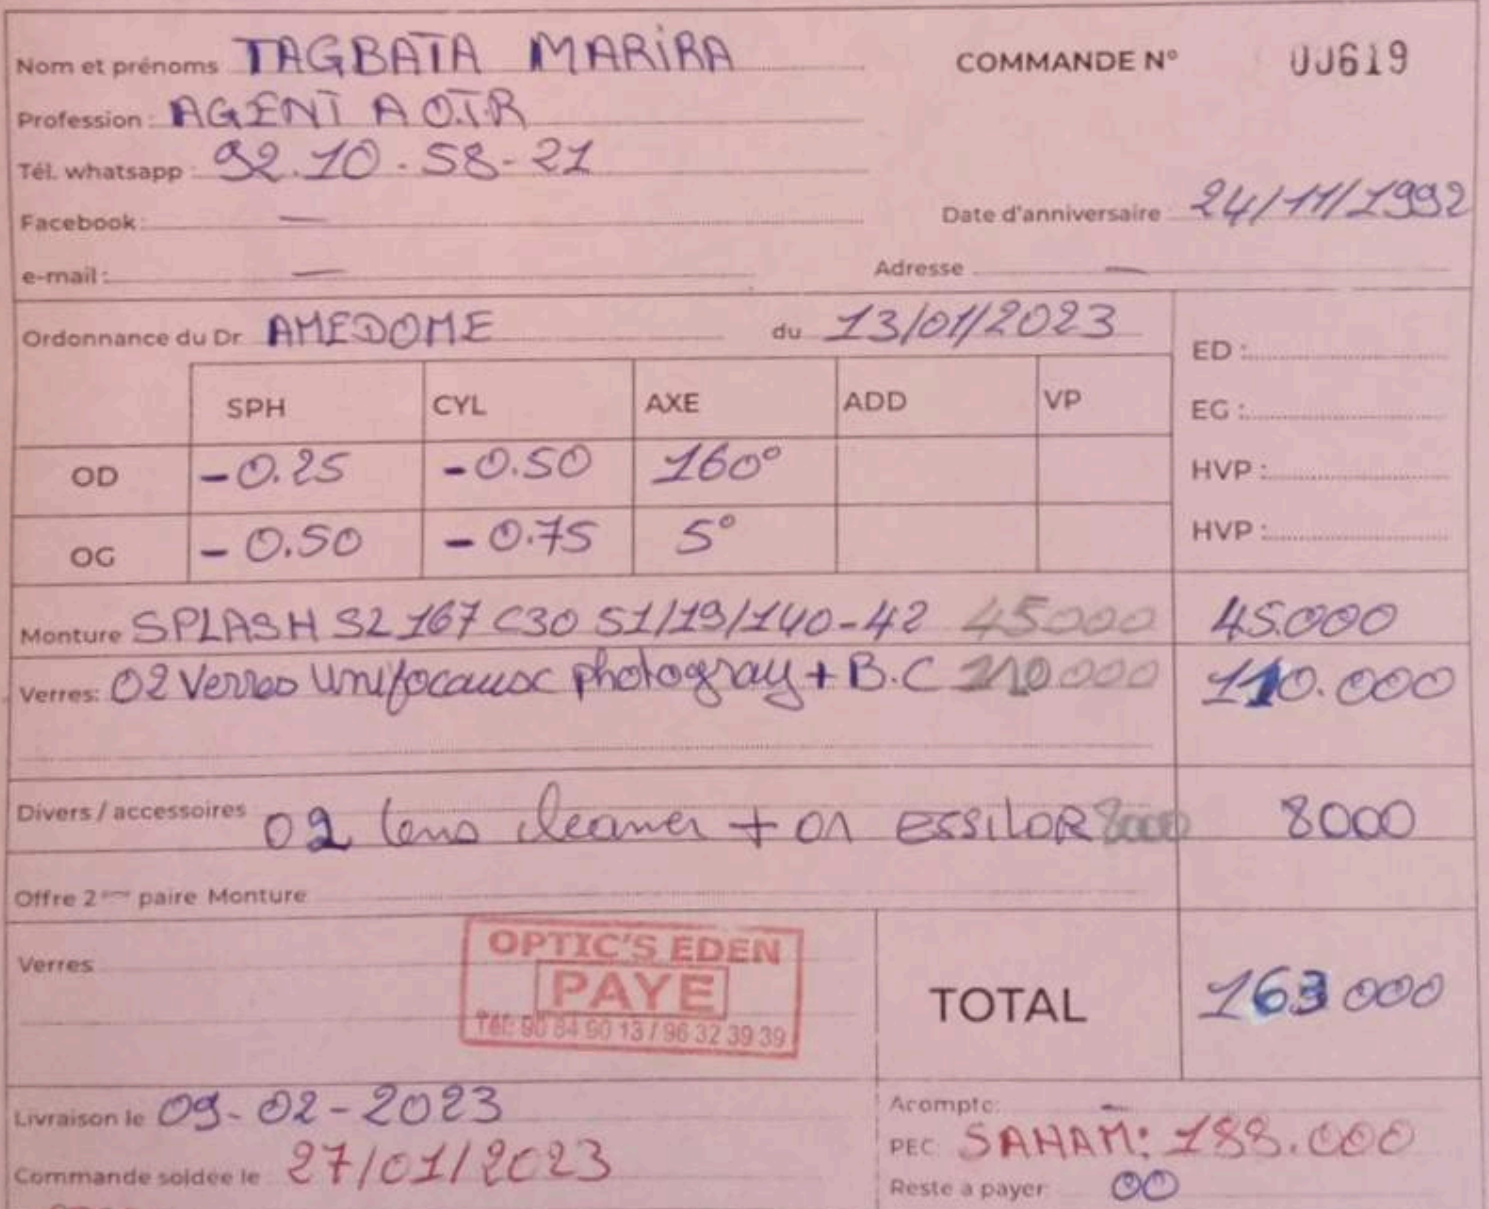 Nom et prénoms TAGBATA MARIRA
COMMANDE N° 00619
Profession : AGENT A OTR
Tél. whatsapp : 92.10.58-21
Facebook : —
Date d'anniversaire 24/11/1992
e-mail : —
Adresse —
Ordonnance du Dr AMEDOME du 13/01/2023
ED :
SPH CYL AXE ADD VP
EG :
OD -0.25 -0.50 160°
HVP :
OG -0.50 -0.75 5°
HVP :
Monture SPLASH S2 167 C30 51/19/140-42 45000 45.000
Verres: 02 Verres Unifocaux photogray + B.C 110.000
Divers / accessoires 02 lens cleaner + 01 ESSILOR 8000 8000
Offre 2ème paire Monture
Verres
OPTIC'S EDEN
PAYE
Tél: 90 84 90 13 / 96 32 39 39
TOTAL 163 000
Livraison le 09-02-2023
Acompte: —
PEC SAHAM: 188.000
Commande soldée le 27/01/2023
Reste à payer 00